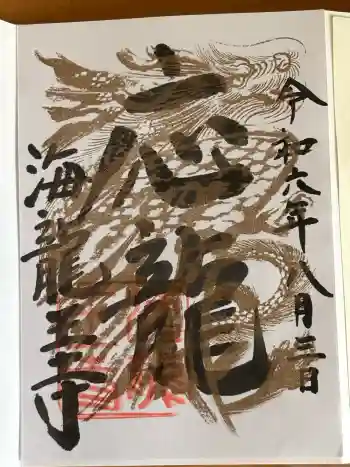 令和六年八月三日
応龍
海龍王寺